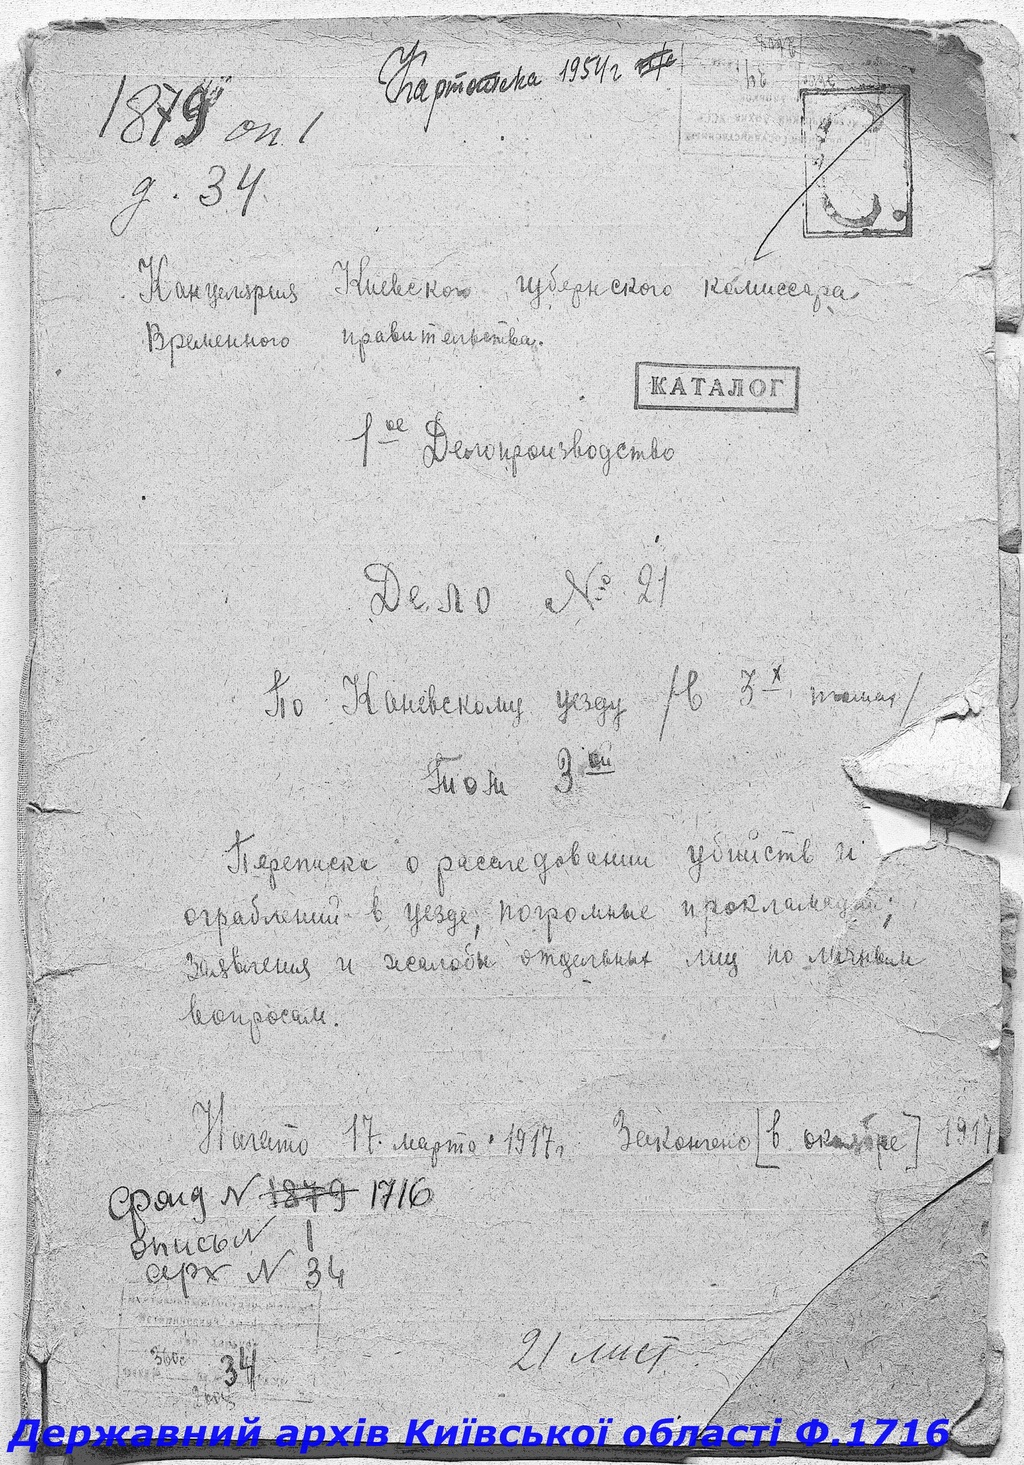 Картотека 1954 г
1879 оп. 1
д. 34
Канцелярия Киевского губернского комиссара
Временного правительства.
КАТАЛОГ
1ое Делопроизводство
Дело № 21
По Каневскому уезду /в 3х томах/
Том 3ий
Переписка о расследовании убийств и
ограблений в уезде, погромные прокламации;
заявления и жалобы отдельных лиц по личным
вопросам.
Начато 17 марта 1917 г. Закончено [в октябре] 1917
фонд N 1879 1716
опись N 1
арх N 34
34
21 лист.
Державний архів Київської області Ф.1716